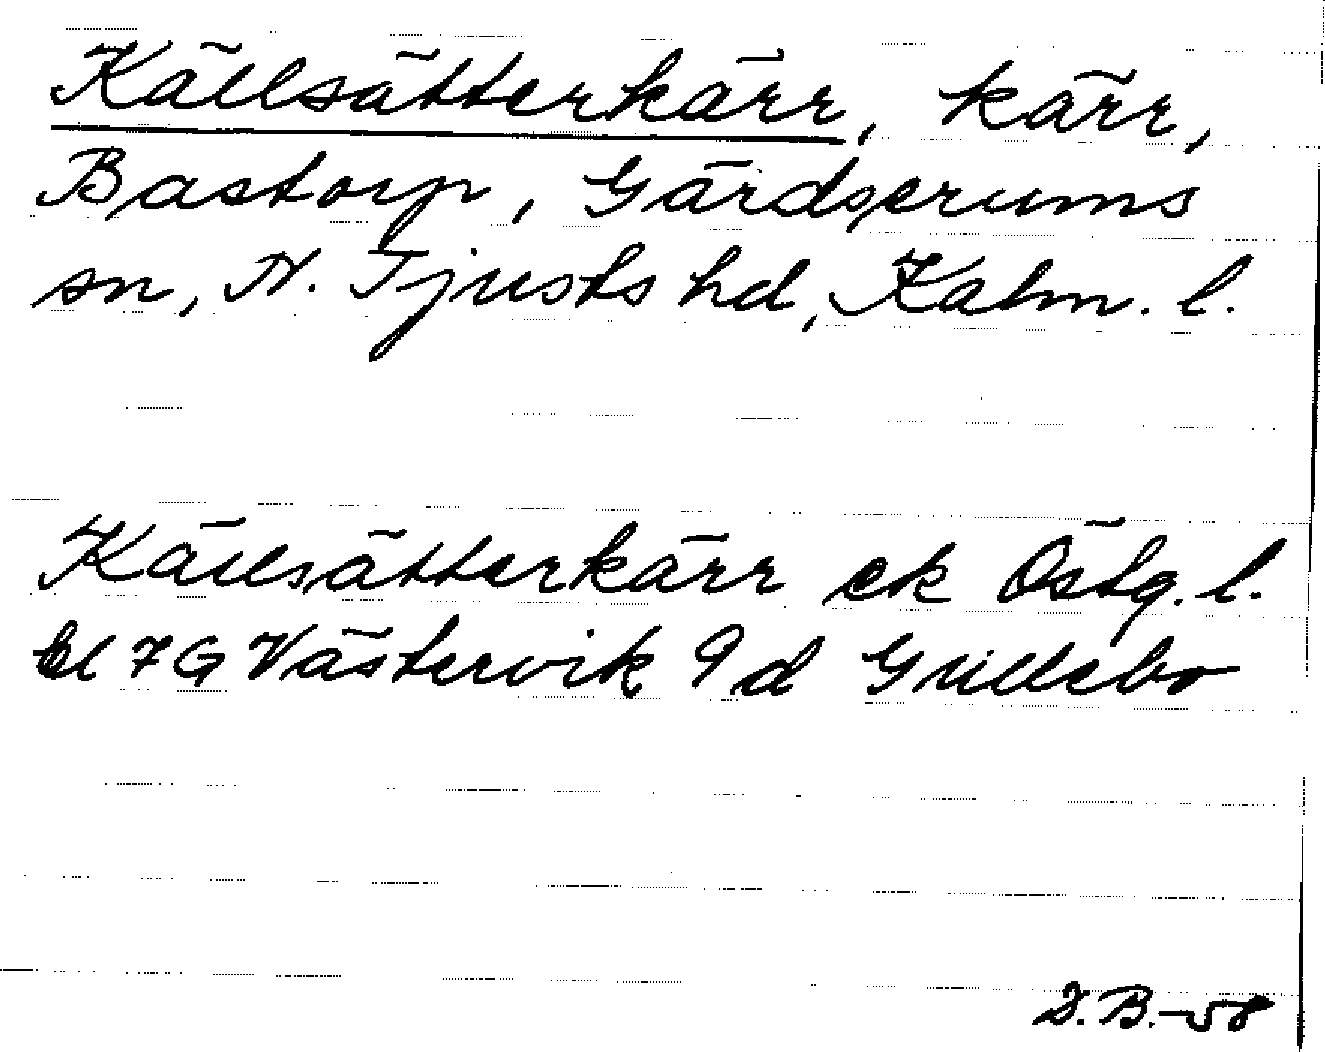 Källsätterkärr, kärr,
Bastorp, Gärdserums
sn, N. Tjusts hd, Kalm. l.
Källsätterkärr ek Östg. l.
bl 7G Västervik 9d Gullebo
D.B.-58